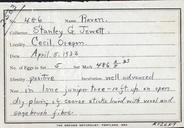 No. 486 Name Raven.
Collector Stanley G. Jewett.
Locality Cecil, Oregon.
Date April 5. 1933
No. of Eggs in Set 5 Set Mark 486
Identity positive Incubation well advanced
Nest In lone juniper tree - 12 ft. up on open
dry plain; of coarse sticks lined with wool and
sage brush fibre.